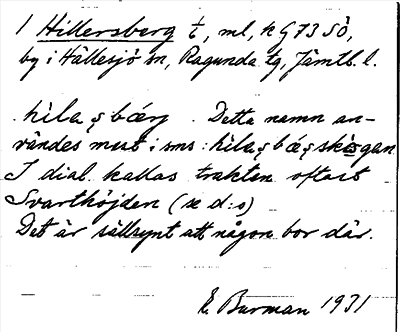 1 Hillersberg t, ml, k G 73 SÖ,
by i Hällesjö sn, Ragunda tg, Jämtl. l.
hilaşbærj. Detta namn an-
vändes mest i sms: hilaşbæşskogan
I dial. kallas trakten oftast
Svarthöjden (se d:o)
Det är sällsynt att någon bor där.
E. Burman 1931